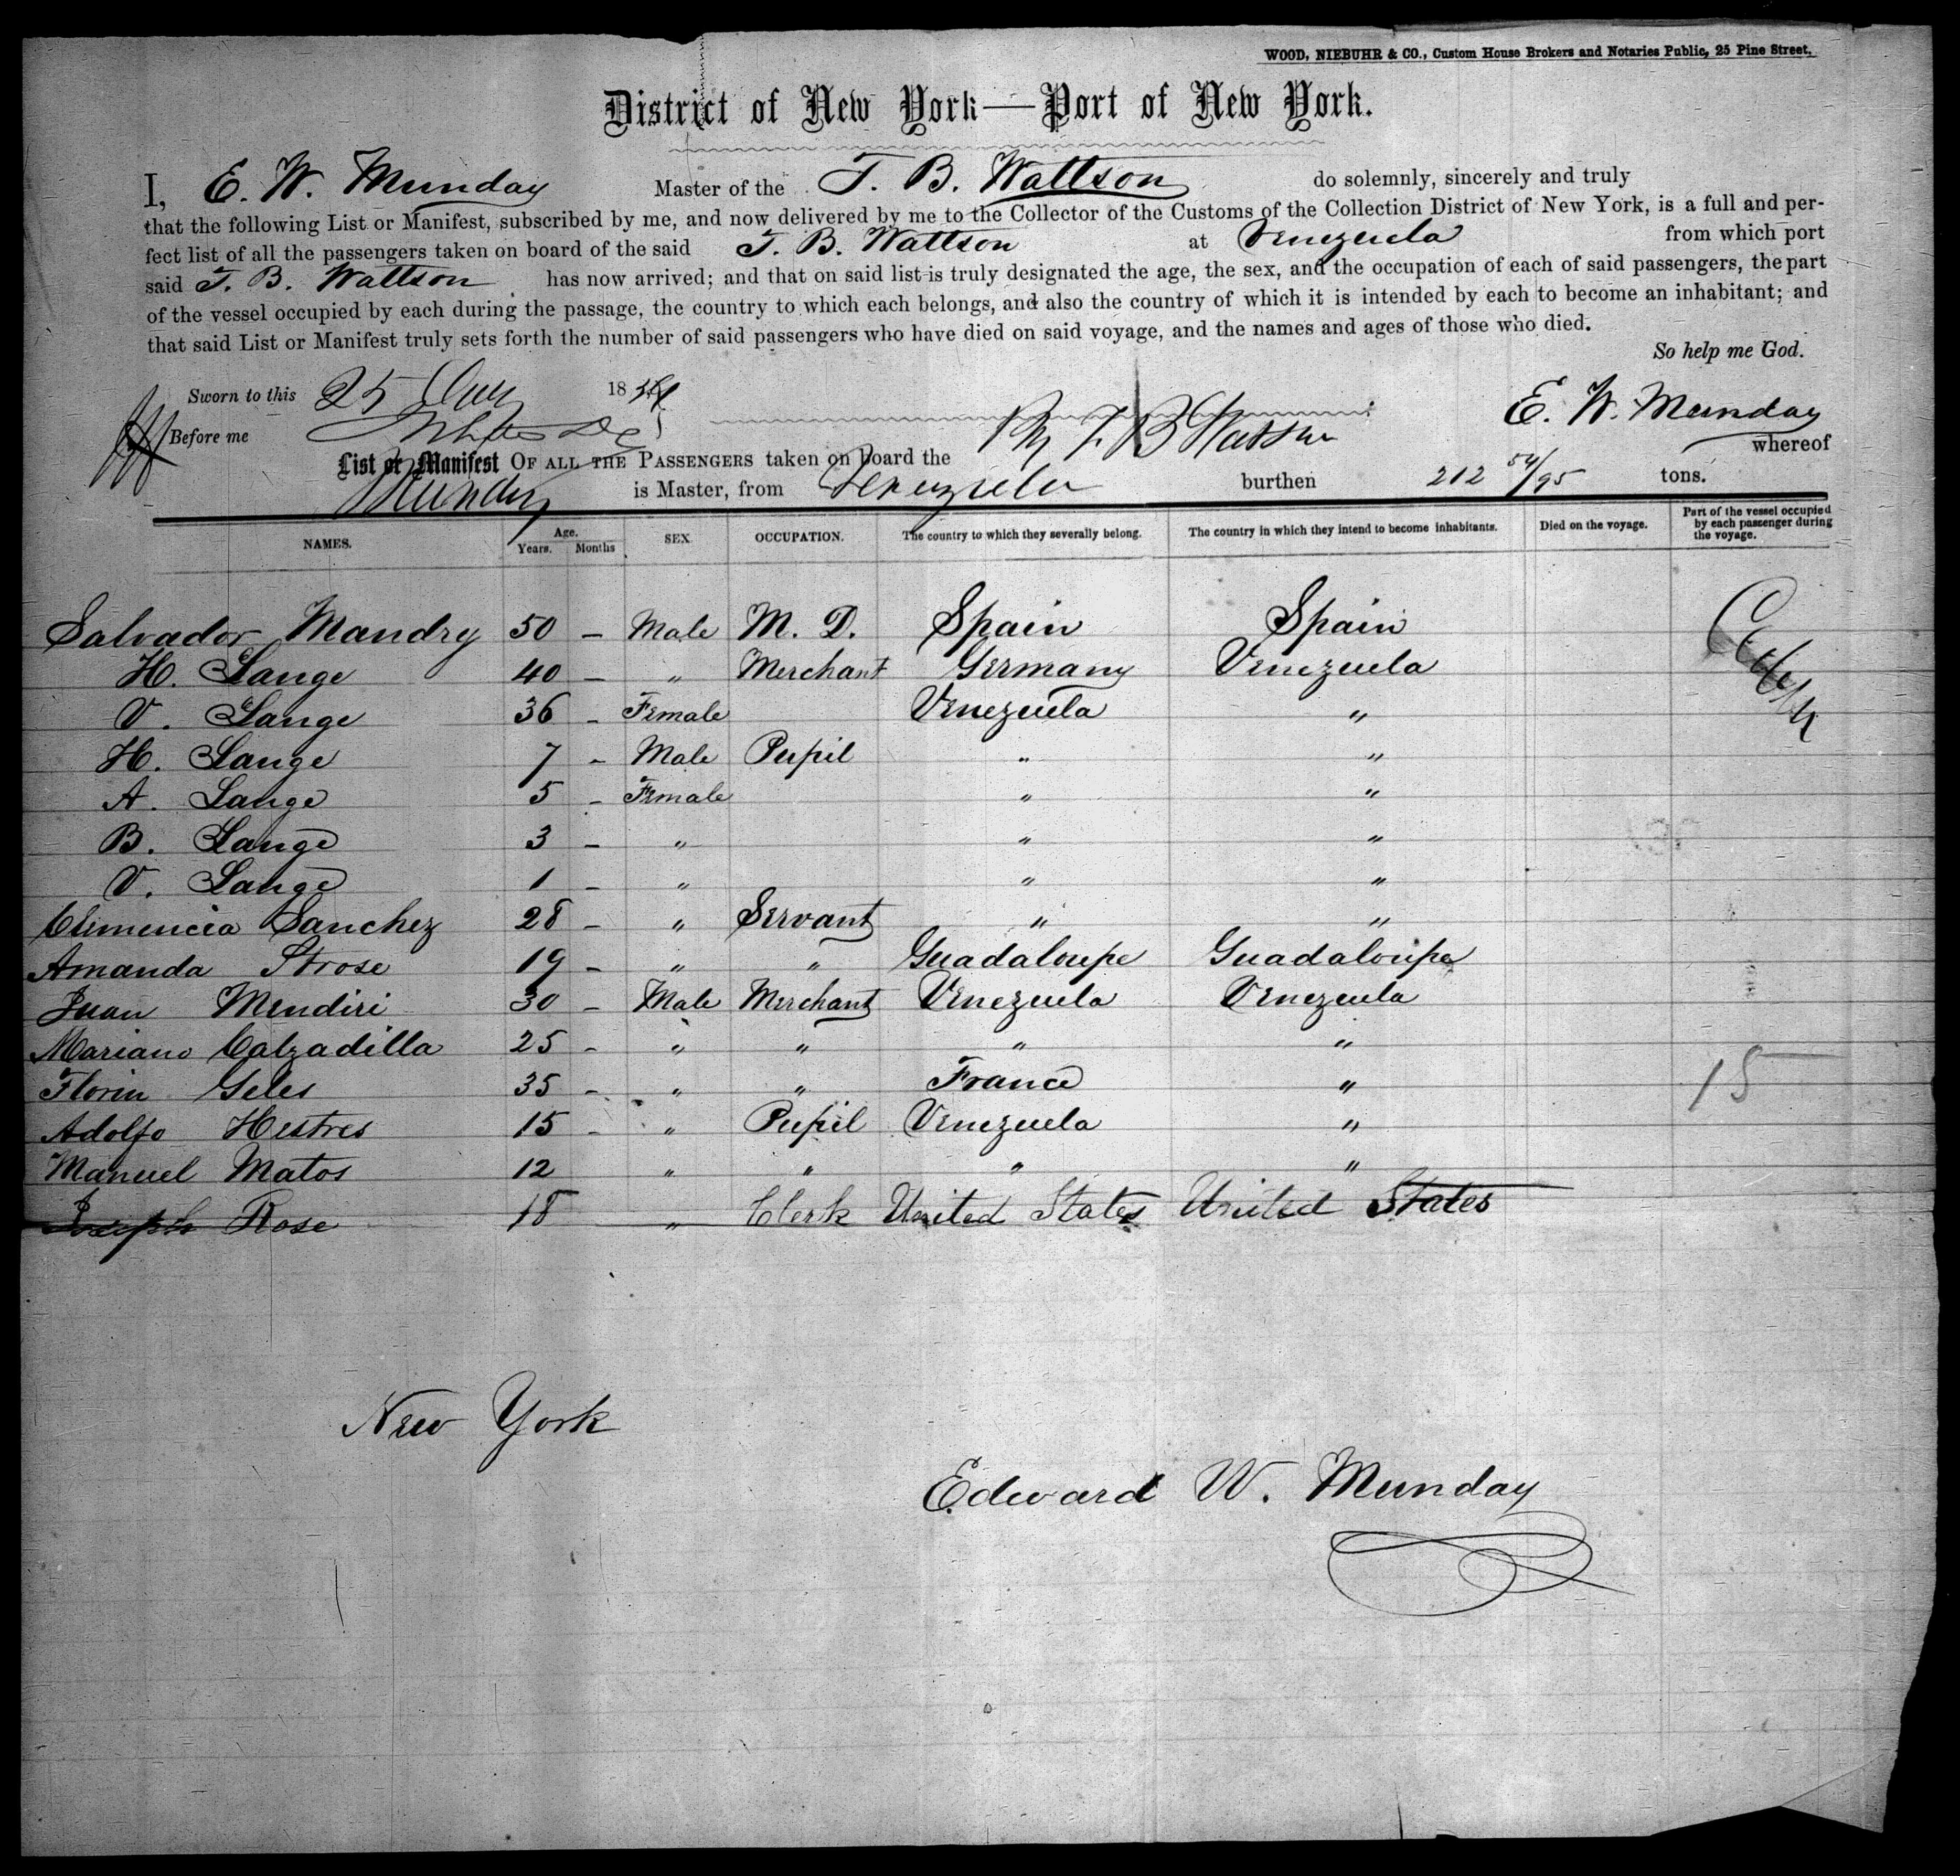 WOOD, NIEBUHR & CO., Custom House Brokers and Notaries Public, 25 Pine Street.
District of New York—Port of New York.
I, E. W. Munday Master of the T. B. Wattson do solemnly, sincerely and truly
that the following List or Manifest, subscribed by me, and now delivered by me to the Collector of the Customs of the Collection District of New York, is a full and per-
fect list of all the passengers taken on board of the said T. B. Wattson at Venezuela from which port
said T. B. Wattson has now arrived; and that on said list is truly designated the age, the sex, and the occupation of each of said passengers, the part
of the vessel occupied by each during the passage, the country to which each belongs, and also the country of which it is intended by each to become an inhabitant; and
that said List or Manifest truly sets forth the number of said passengers who have died on said voyage, and the names and ages of those who died.
So help me God.
Sworn to this 25 18
E. W. Munday
Before me
whereof
List or Manifest OF ALL THE PASSENGERS taken on board the T B Wattson
Munday is Master, from Venezuela burthen 212 54/95 tons.
NAMES. Age. Years. Months SEX. OCCUPATION. The country to which they severally belong. The country in which they intend to become inhabitants. Died on the voyage. Part of the vessel occupied by each passenger during the voyage.
Salvador Mandry 50 – Male M. D. Spain Spain
H. Lange 40 – " Merchant Germany Venezuela
V. Lange 36 – Female Venezuela "
H. Lange 7 – Male Pupil " "
A. Lange 5 – Female " "
B. Lange 3 – " " "
V. Lange 1 – " " "
Clemencia Sanchez 28 – " Servant " "
Amanda Strose 19 – " " Guadaloupe Guadaloupe
Juan Mendiri 30 – Male Merchant Venezuela Venezuela
Mariano Calzadilla 25 – " " " "
Florin Geles 35 – " " France "
15
Adolfo Hestres 15 – " Pupil Venezuela "
Manuel Matos 12 " " " "
Joseph Rose 18 " Clerk United States United States
New York
Edward W. Munday